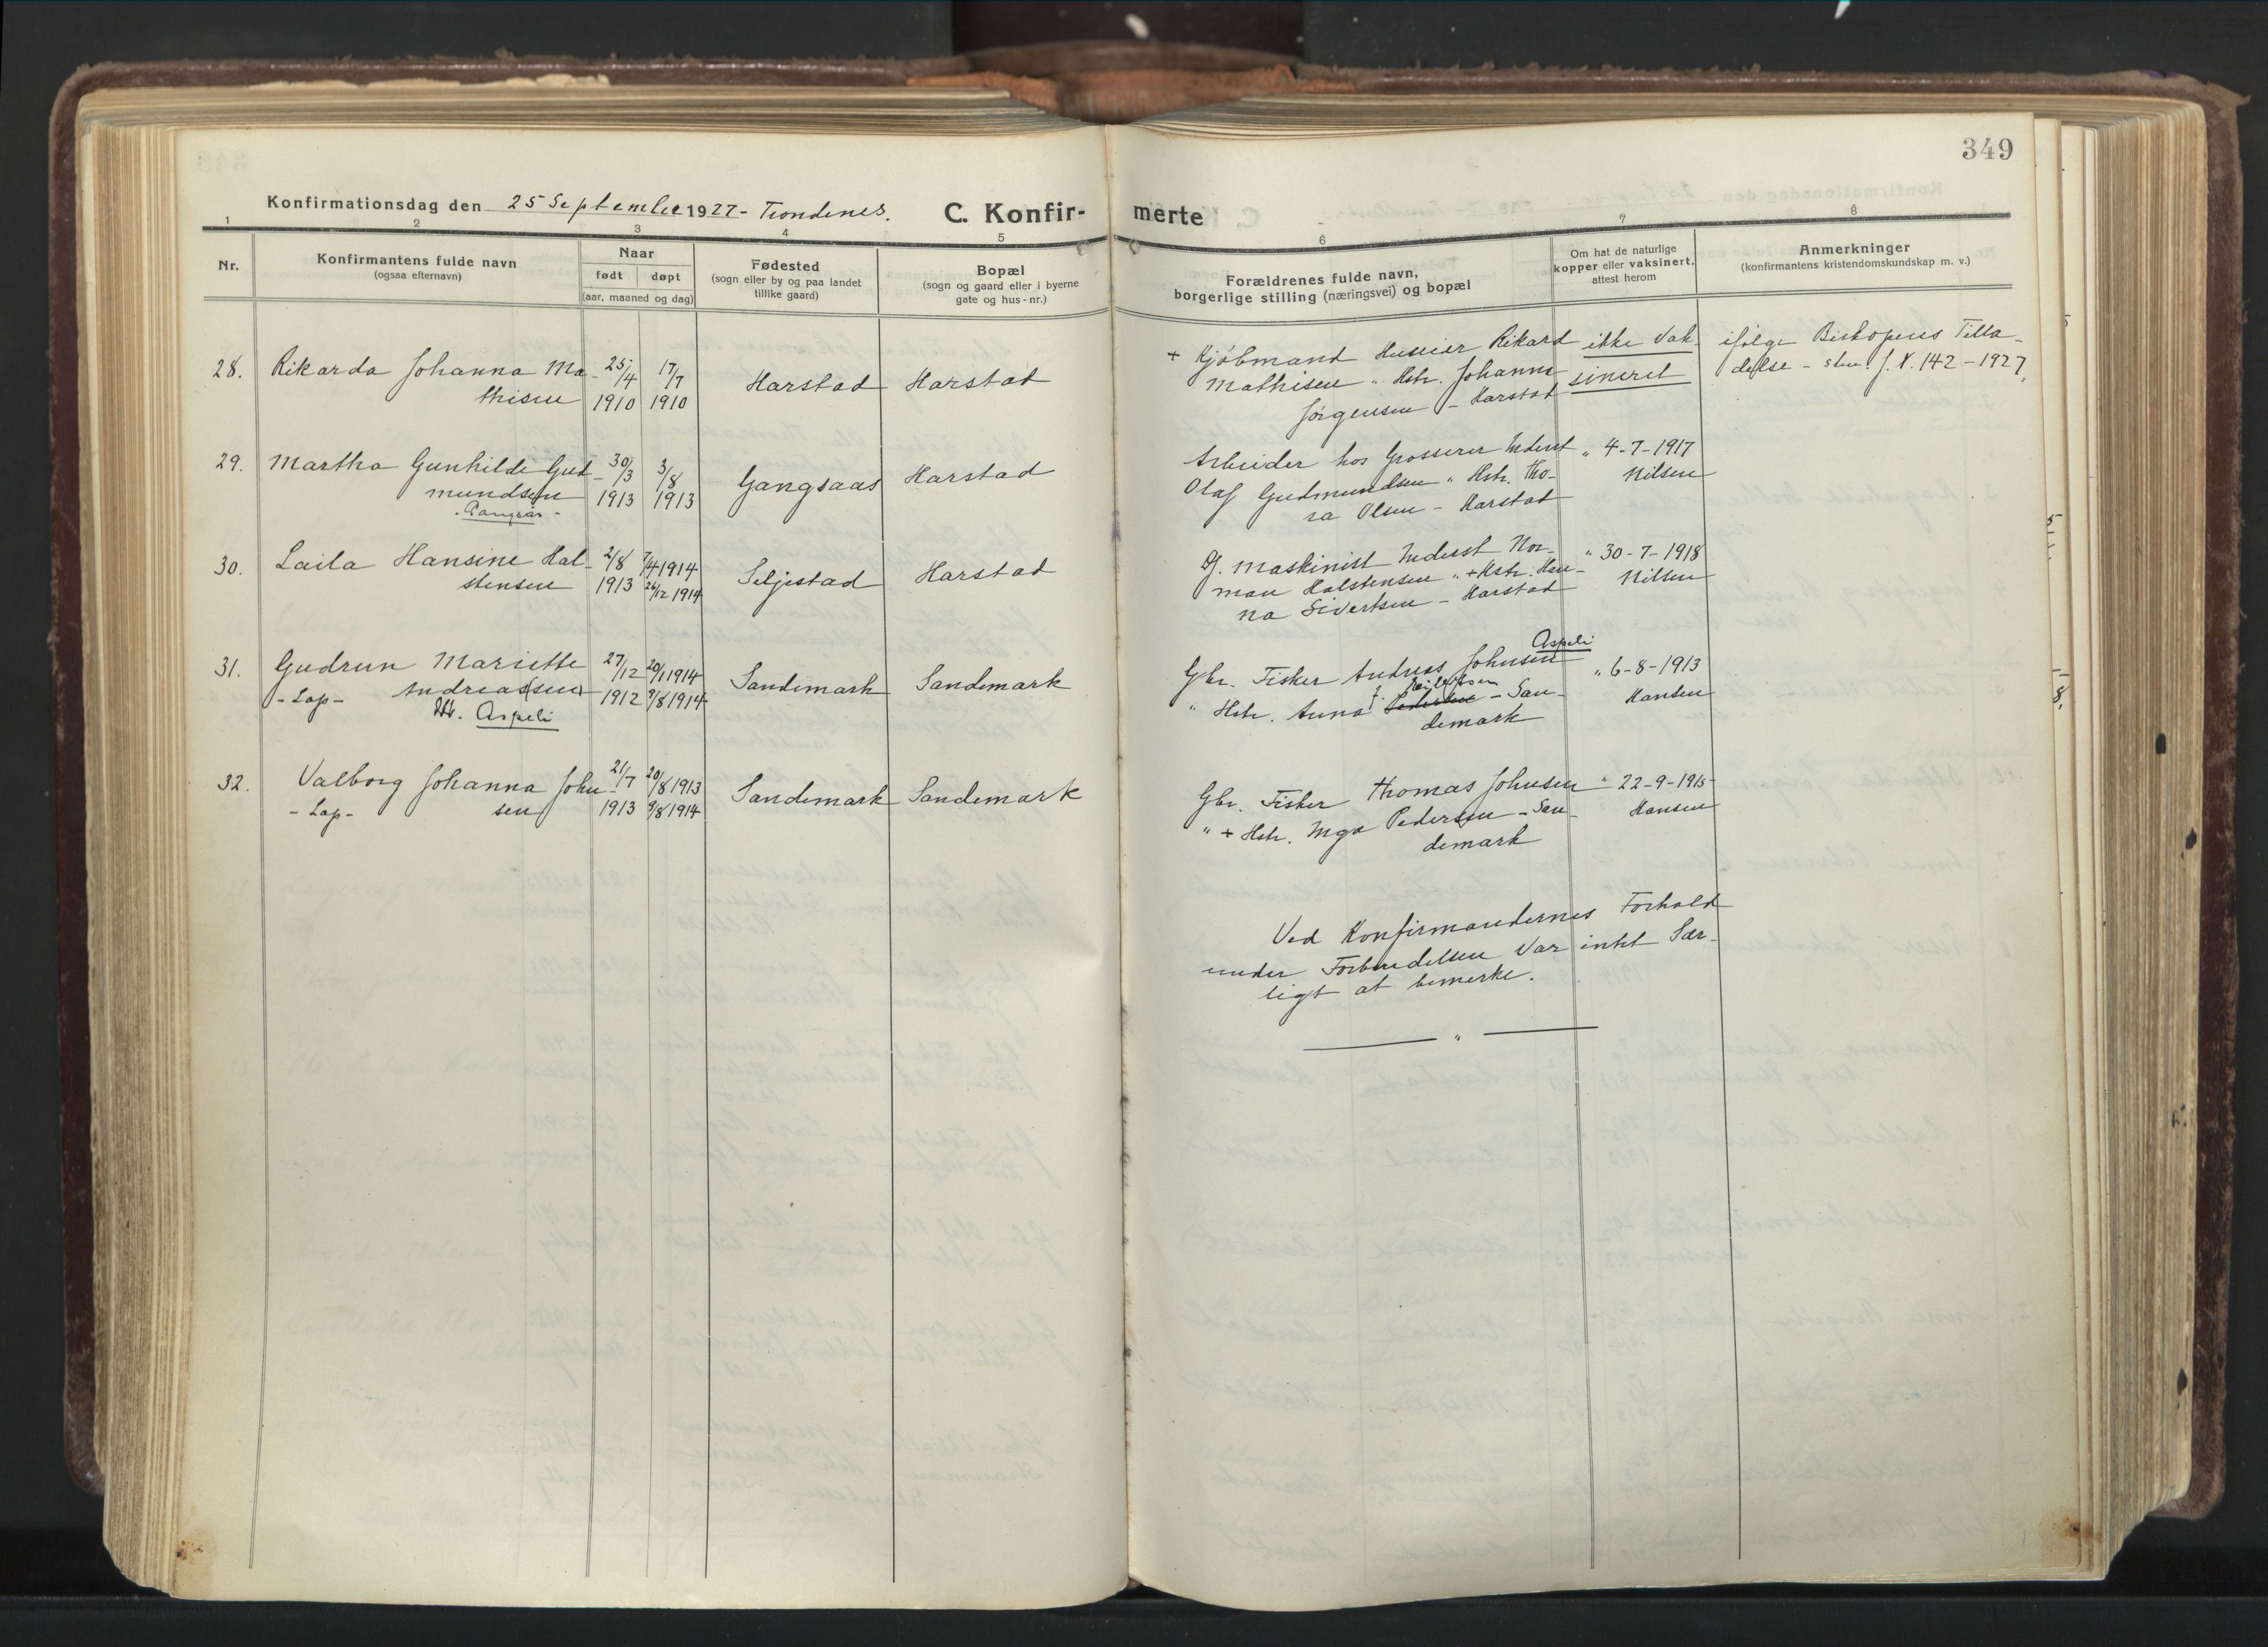 349
Konfirmationsdag den 25 September 1927 - Trondenes.
C. Konfir-
merte
1 2 3 4 5 6 7 8
Nr.
Konfirmantens fulde navn
(ogsaa efternavn)
Naar
født døpt
(aar, maaned og dag)
Fødested
(sogn eller by og paa landet
tillike gaard)
Bopæl
(sogn og gaard eller i byerne
gate og hus-nr.)
Forældrenes fulde navn,
borgerlige stilling (næringsvei) og bopæl
Om hat de naturlige
kopper eller vaksinert,
attest herom
Anmerkninger
(konfirmantens kristendomskundskap m. v.)
28. Rikarda Johanna Ma-
thisen
25/4 1910
17/7 1910
Harstad
Harstad
+ Kjøbmand Huseier Rikard
Mathisen " Hstr. Johanna
Jørgensen - Harstad
ikke vak-
sineret
ifølge Biskopens Tilla-
delse - J. N. 142 - 1927.
29. Martha Gunhilde Gud-
mundsen
- Gangsås -
30/3 1913
3/8 1913
Gangsaas
Harstad
Arbeider hos Grosserer Inderst
Olaf Gudmundsen " Hstr. Tho-
ra Olsen - Harstad
" 4-7-1917
Nilsen
30. Laila Hansine Hal-
stensen
2/8 1913
7/4 1914
26/12 1914
Seljestad
Harstad
Maskinist Inderst Nor-
man Halstensen " + Hstr. Han-
na Sivertsen - Harstad
" 30-7-1918
Nilsen
31. Gudrun Mariette
- Lap - Andreas(sen)
Aspeli
27/12 1912
20/1 1914
9/8 1914
Sandemark
Sandemark
Aspeli
Gbr. Fisker Andreas Johnsen
" Hstr. Anna Pedersen - San-
demark
" 6-8-1913
Hansen
32. Valborg Johanna John-
- Lap - sen
21/7 1913
20/8 1913
9/8 1914
Sandemark
Sandemark
Gbr. Fisker Thomas Johnsen
" + Hstr. Inga Pedersen - San-
demark
" 22-9-1915
Hansen
Ved Konfirmandernes Forhold
under Forberedelsen var intet Sær-
ligt at bemerke.
— " —